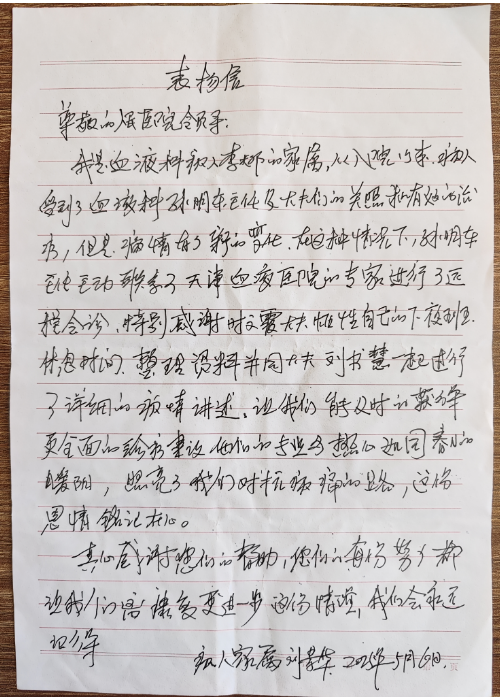 表扬信
尊敬的人民医院领导:
我是血液科病人李娜的家属,从入院以来,病人
受到了血液科孙明东主任及大夫们的关照和有效的治
疗,但是病情有了新的变化,在这种情况下,孙明东
主任主动联系了天津血液医院的专家进行了远
程会诊,特别感谢时文霞大夫牺牲自己的下夜班
休息时间,整理资料并同大夫刘书慧一起进行
了详细的病情讲述,让我们能及时的获得
更全面的诊疗建议,他们的专业与热心如同春日的
暖阳,照亮了我们对抗病痛的路,这份
恩情铭记在心。
真心感谢您们的帮助,您们的每份努力都
让我们的 健康变进一步 这份情谊,我们会永远
记得
病人家属刘 2025年5月6日.